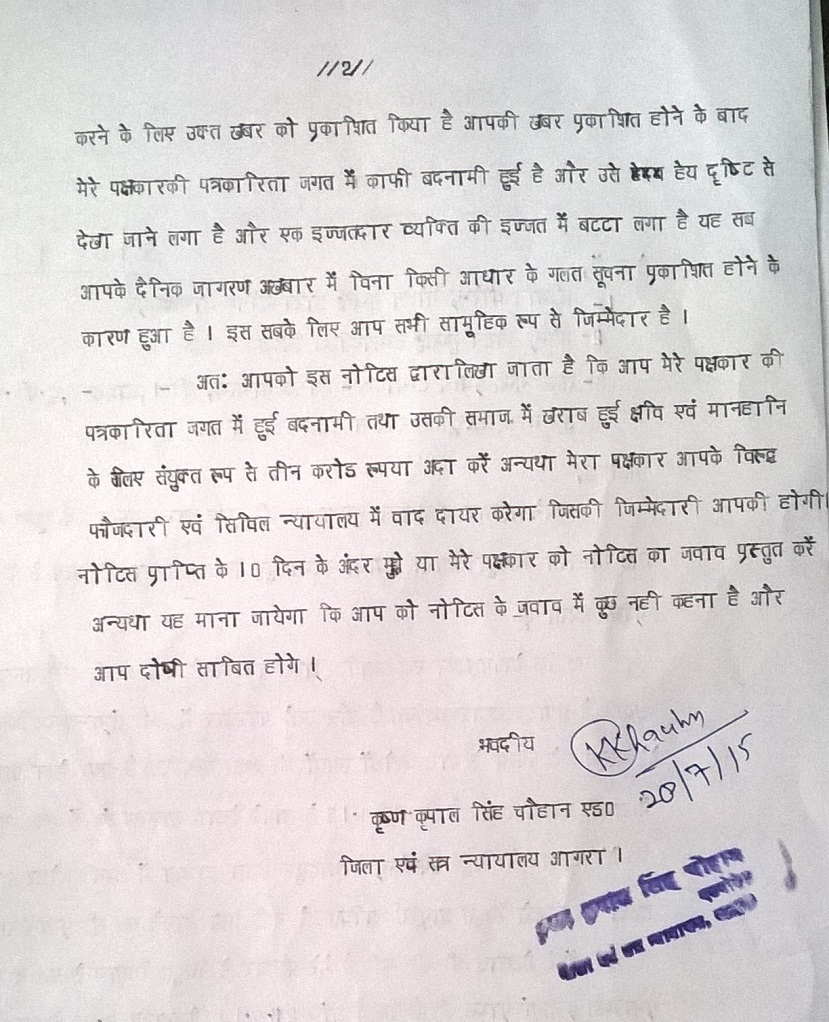 //2//
करने के लिए उक्त खबर को प्रकाशित किया है आपकी खबर प्रकाशित होने के बाद
मेरे पक्षकारकी पत्रकारिता जगत में काफी बदनामी हुई है और उसे हेय दृष्टि से
देखा जाने लगा है और एक इज्जतदार व्यक्ति की इज्जत में बटटा लगा है यह सब
आपके दैनिक जागरण अखबार में विना किसी आधार के गलत सूचना प्रकाशित होने के
कारण हुआ है । इस सबके लिए आप सभी सामूहिक रूप से जिम्मेदार है ।
अतः आपको इस नोटिस द्वारा लिखा जाता है कि आप मेरे पक्षकार की
पत्रकारिता जगत में हुई बदनामी तथा उसकी समाज में खराब हुई क्षवि एवं मानहानि
के लिए संयुक्त रूप से तीन करोड रूपया अदा करें अन्यथा मेरा पक्षकार आपके विरूद्ध
फौजदारी एवं सिविल न्यायालय में वाद दायर करेगा जिसकी जिम्मेदारी आपकी होगी।
नोटिस प्राप्ति के 10 दिन के अंदर मुझे या मेरे पक्षकार को नोटिस का जवाव प्रस्तुत करें
अन्यथा यह माना जायेगा कि आप को नोटिस के जवाव में कुछ नही कहना है और
आप दोषी साबित होगे ।
भवदीय
KKChauhn
28/7/15
कृष्ण कृपाल सिंह चौहान एड0
जिला एवं सत्र न्यायालय आगरा ।
कृपाल सिंह चौहान
एवं सत्र न्यायालय,